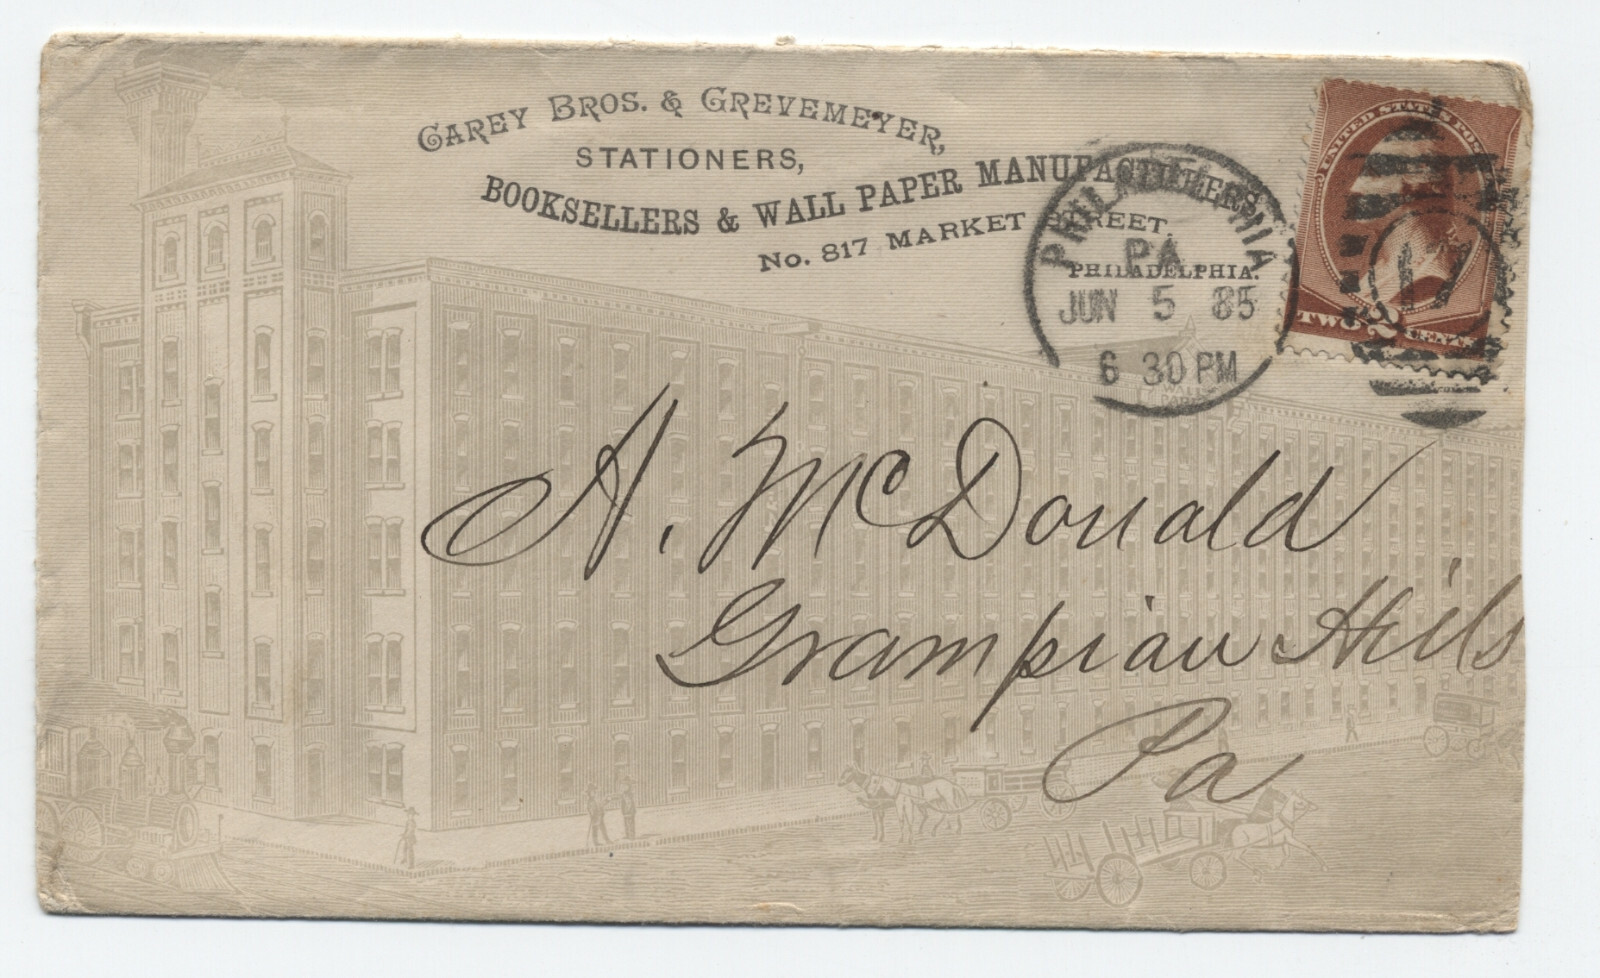 CAREY BROS. & GREVEMEYER,
STATIONERS,
BOOKSELLERS & WALL PAPER MANUFACTURERS,
No. 817 MARKET STREET,
PHILADELPHIA.
PHILADELPHIA
PA
JUN 5 85
6 30 PM
UNITED STATES POSTAGE
TWO 2 CENTS
17
A. McDonald
Grampian Hills
Pa